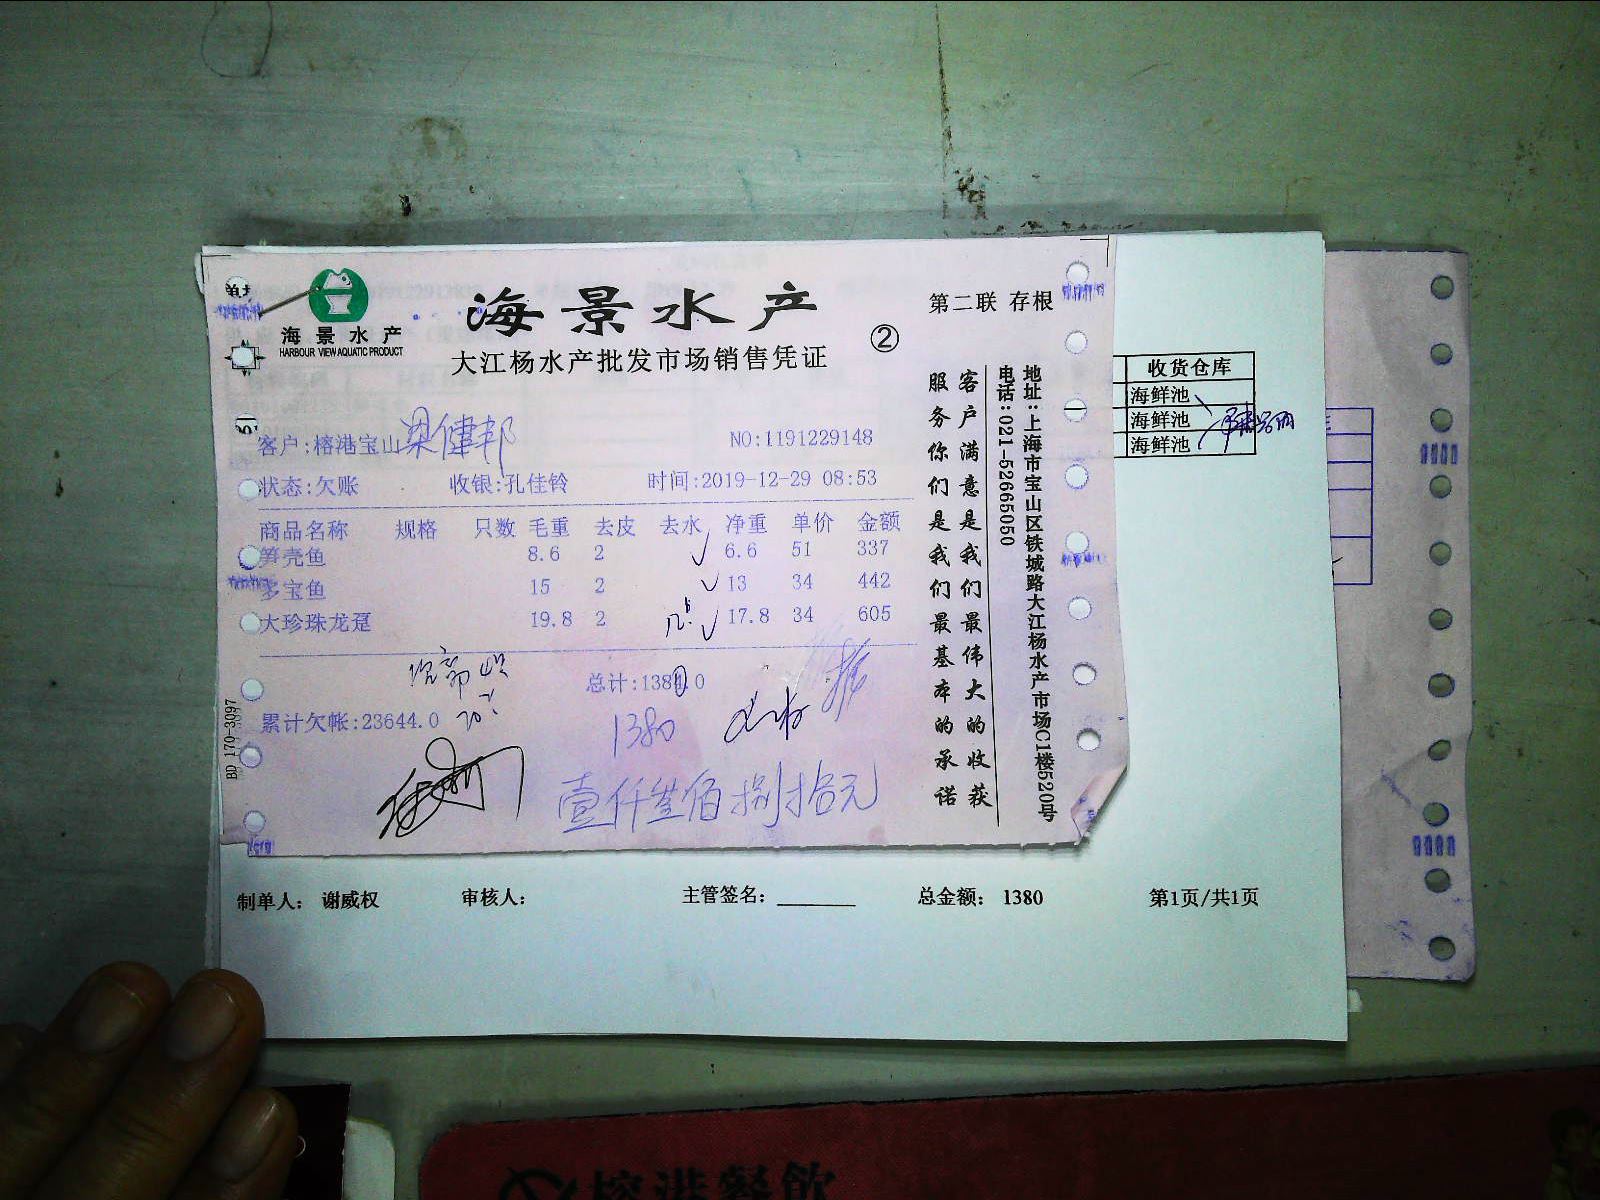 海景水产
HARBOUR VIEW AQUATIC PRODUCT
海景水产
大江杨水产批发市场销售凭证
②
第二联 存根
客户:榕港宝山 梁健邦
NO:1191229148
状态:欠账 收银:孔佳铃 时间:2019-12-29 08:53
商品名称 规格 只数 毛重 去皮 去水 净重 单价 金额
笋壳鱼 8.6 2 6.6 51 337
多宝鱼 15 2 13 34 442
大珍珠龙趸 19.8 2 17.8 34 605
总计:1384.0
累计欠帐:23644.0
1380
壹仟叁佰捌拾元
BD 170-3097
客户满意是我们最伟大的收获
服务你们是我们最基本的承诺
地址:上海市宝山区铁城路大江杨水产市场C1楼520号
电话:021-52665050
收货仓库
海鲜池
海鲜池
海鲜池
制单人: 谢威权 审核人: 主管签名: 总金额: 1380 第1页/共1页
榕港餐飲